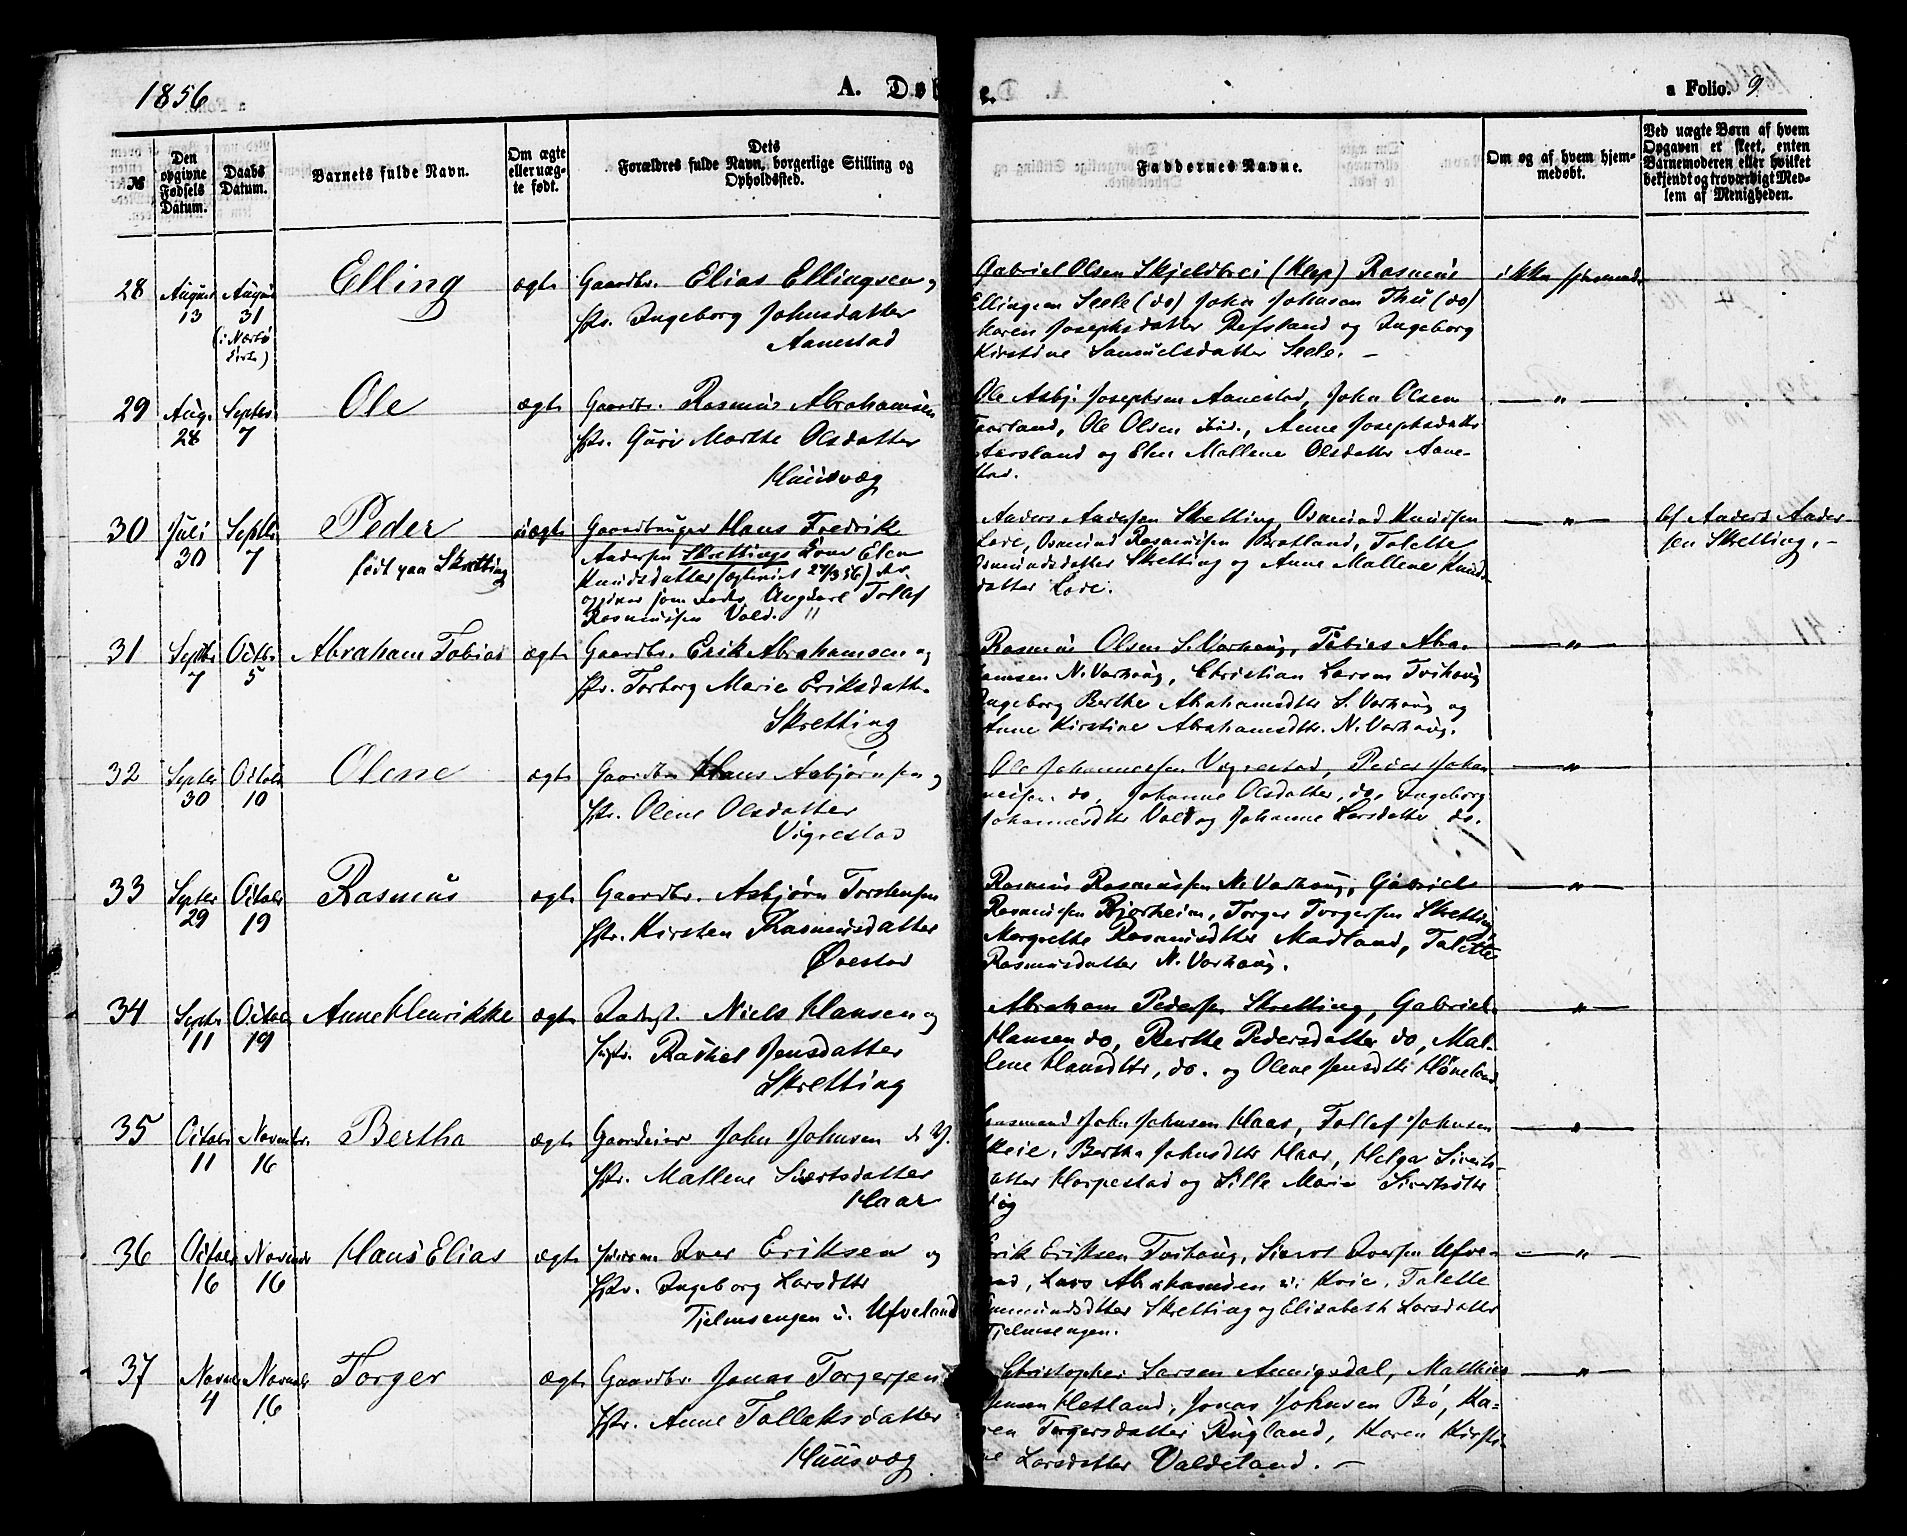 1856
A. Døb
e.
a Folio. 9
№
Den opgivne Fødsels Datum.
Daabs Datum.
Barnets fulde Navn.
Om ægte eller uæg- te født.
Dets Forældres fulde Navn, borgerlige Stilling og Opholdssted.
Faddernes Navne.
Om og af hvem hjem- medøbt.
Ved uægte Børn af hvem Opgaven er skeet, enten Barnemoderen eller hvilket bekjendt og troværdigt Med- lem af Menigheden.
28 August 13 August 31 Elling ægte Gaardbr. Elias Ellingsen og
Hstr. Ingeborg Johnsdatter
Aanestad
Gabriel Olsen Skjeldbrei (Klep) Rasmus
Ellingsen Seele (do) John Johnsen Thu (do)
Karen Josephsdatter Refsland og Ingeborg
Kirstine Samuelsdatter Seele. —
ikke hjemmed.
29 Aug. 28 Septbr. 7 Ole ægte Gaardbr. Rasmus Abrahamsen
Hstr. Guri Marthe Olsdatter
Huusvæg
Ole Asbj. Josephsen Aanestad, John Olsen
Ole Olsen ibid., Anne Josephsdatter
og Elen Mallene Olsdatter Aane-
stad.
— " —
30 Juli 30 Septbr 7 Peder uægte Gaardbruger Hans Fredrik
født paa Skretting
Andersen Skrettings Kone Elen
Knudsdatter
opgiver som Fader Ungkarl Tollef
Rasmussen Vold. "
Anders Andersen Skretting, Osmund Knudsen
Osmund Rasmussen Bratland, Talette
Osmundsdatter Skretting og Anne Mallene Knuds-
datter
— " —
af Anders Ander-
sen Skretting. —
31 Septbr 7 Octbr. 5 Abraham Tobias ægte Gaardbr. Erik Abrahamsen og
Hstr. Torborg Marie Eriksdatter
Skretting
Rasmus Olsen S. Varhoug, Tobias Abra-
hamsen N. Varhoug, Christian Larsen Tvihoug
Ingeborg Berthe Abrahamsdtr S. Varhoug og
Anne Kirstine Abrahamsdttr. N. Varhoug.
— " —
32 Septbr 30 Octobr 10 Olene ægte Gaardbr Hans Asbjørnsen og
Hstr. Olene Olsdatter
Vigrestad
Ole Johannessen Vigrestad, Peder Johan-
nessen do, Johanne Olsdatter, do, Ingeborg
Johannesdttr Vold og Johanne Larsdatter do.
— " —
33 Septbr 29 Octobr 19 Rasmus ægte Gaardbr. Asbjørn Torstensen
Hstr. Kirsten Rasmusdatter
Øvestad
Rasmus Rasmussen N. Varhoug, Gabriel
Rasmussen Bjorheim, Torger Torgersen Skretting,
Margrethe Rasmusdttr Madland, Talette
Rasmusdatter N. Varhoug.
— " —
34 Septbr 11 Octobr 19 Anne Henrikke ægte Niels Hansen og
Hstr. Rachel Jensdatter
Skretting
Abraham Pedersen Skretting, Gabriel
Hansen do, Berthe Pedersdatter do, Mal-
lene Hansdttr, do. og Olene Jensdttr Høneland
— " —
35 Octobr 11 Novembr. 16 Bertha ægte Gaardeier John Johnsen d. Y.
Hstr. Mallene Sivertsdatter
Haar
John Johnsen Haar, Tollef Johnsen
Bertha Johnsdttr Haar, Helga Siverts-
datter Harpestad og Sille Marie Sivertsdttr
— " —
36 Octobr 16 Novembr 16 Hans Elias ægte Huusm. Iver Eriksen og
Hstr. Ingeborg Larsdttr
Tjelmsengen u. Ufveland
Erik Eriksen Tvihoug, Sivert Iversen Ufve-
land, Lars Abrahamsen Kvie, Talette
Osmundsdtter Skretting og Elisabeth Larsdatter
Tjelmsengen.
— " —
37 Novbr 4 Novembr 16 Torger ægte Gaardbr. Jonas Torgersen
Hstr. Anne Tollaksdatter
Huusvæg
Christopher Larsen Auuigsdal, Mathias
Jensen Hetland, Jonas Johnsen Bø, Ka-
ren Torgersdatter Rugland, Karen Kirsti-
ne Larsdatter Valdeland. —
— " —